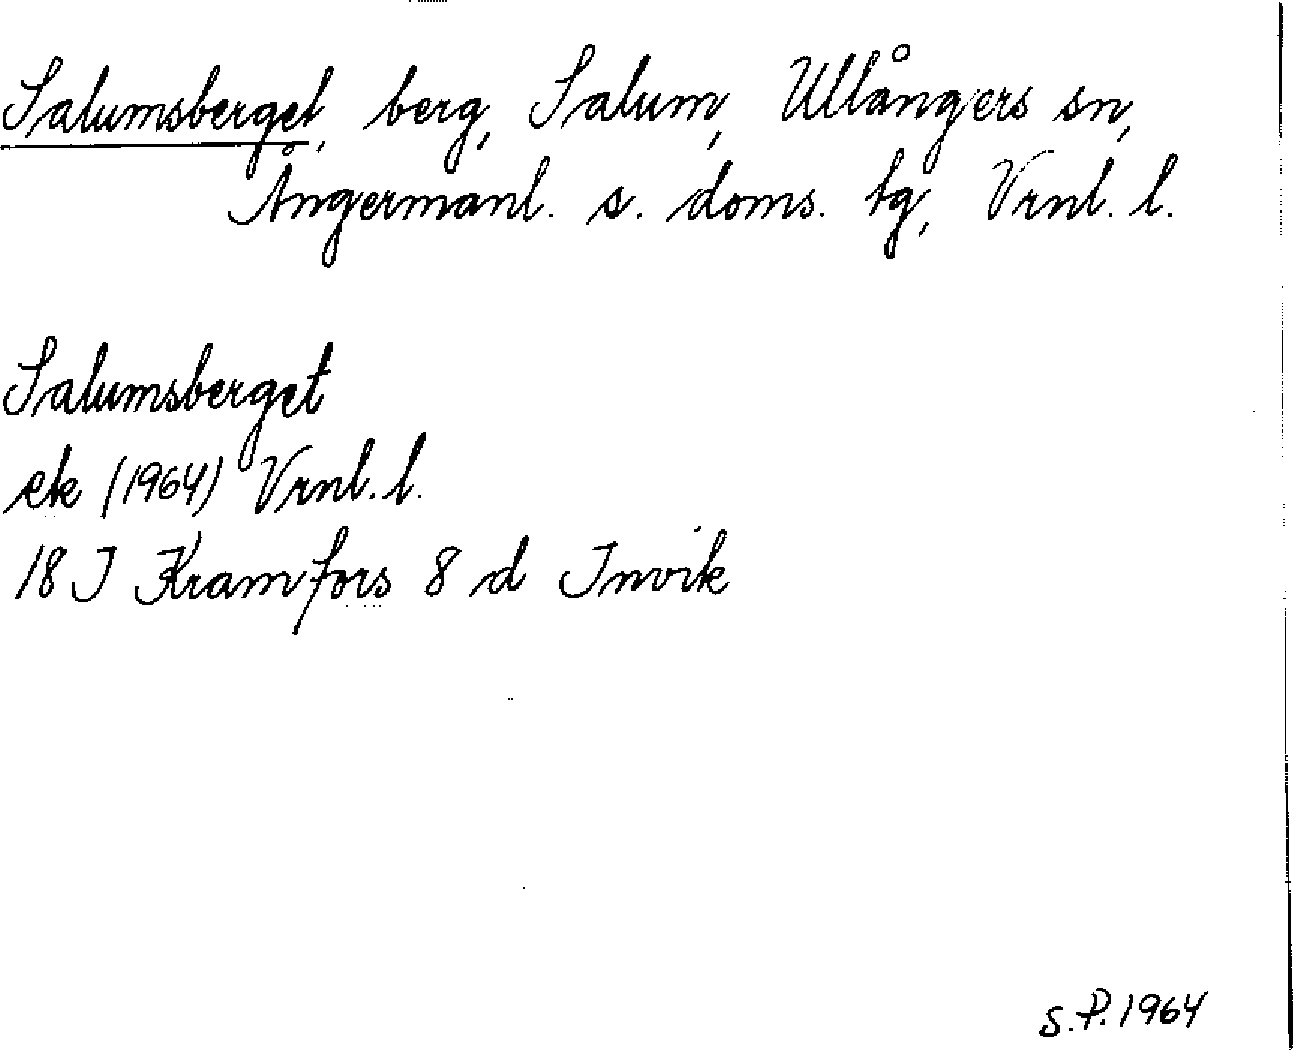 Salumsberget, berg, Salum, Ullångers sn,
Ångermanl. s. doms. tg, Vrnl. l.
Salumsberget
ek (1964) Vrnl. l.
18 J Kramfors 8 d Invik
S.P. 1964